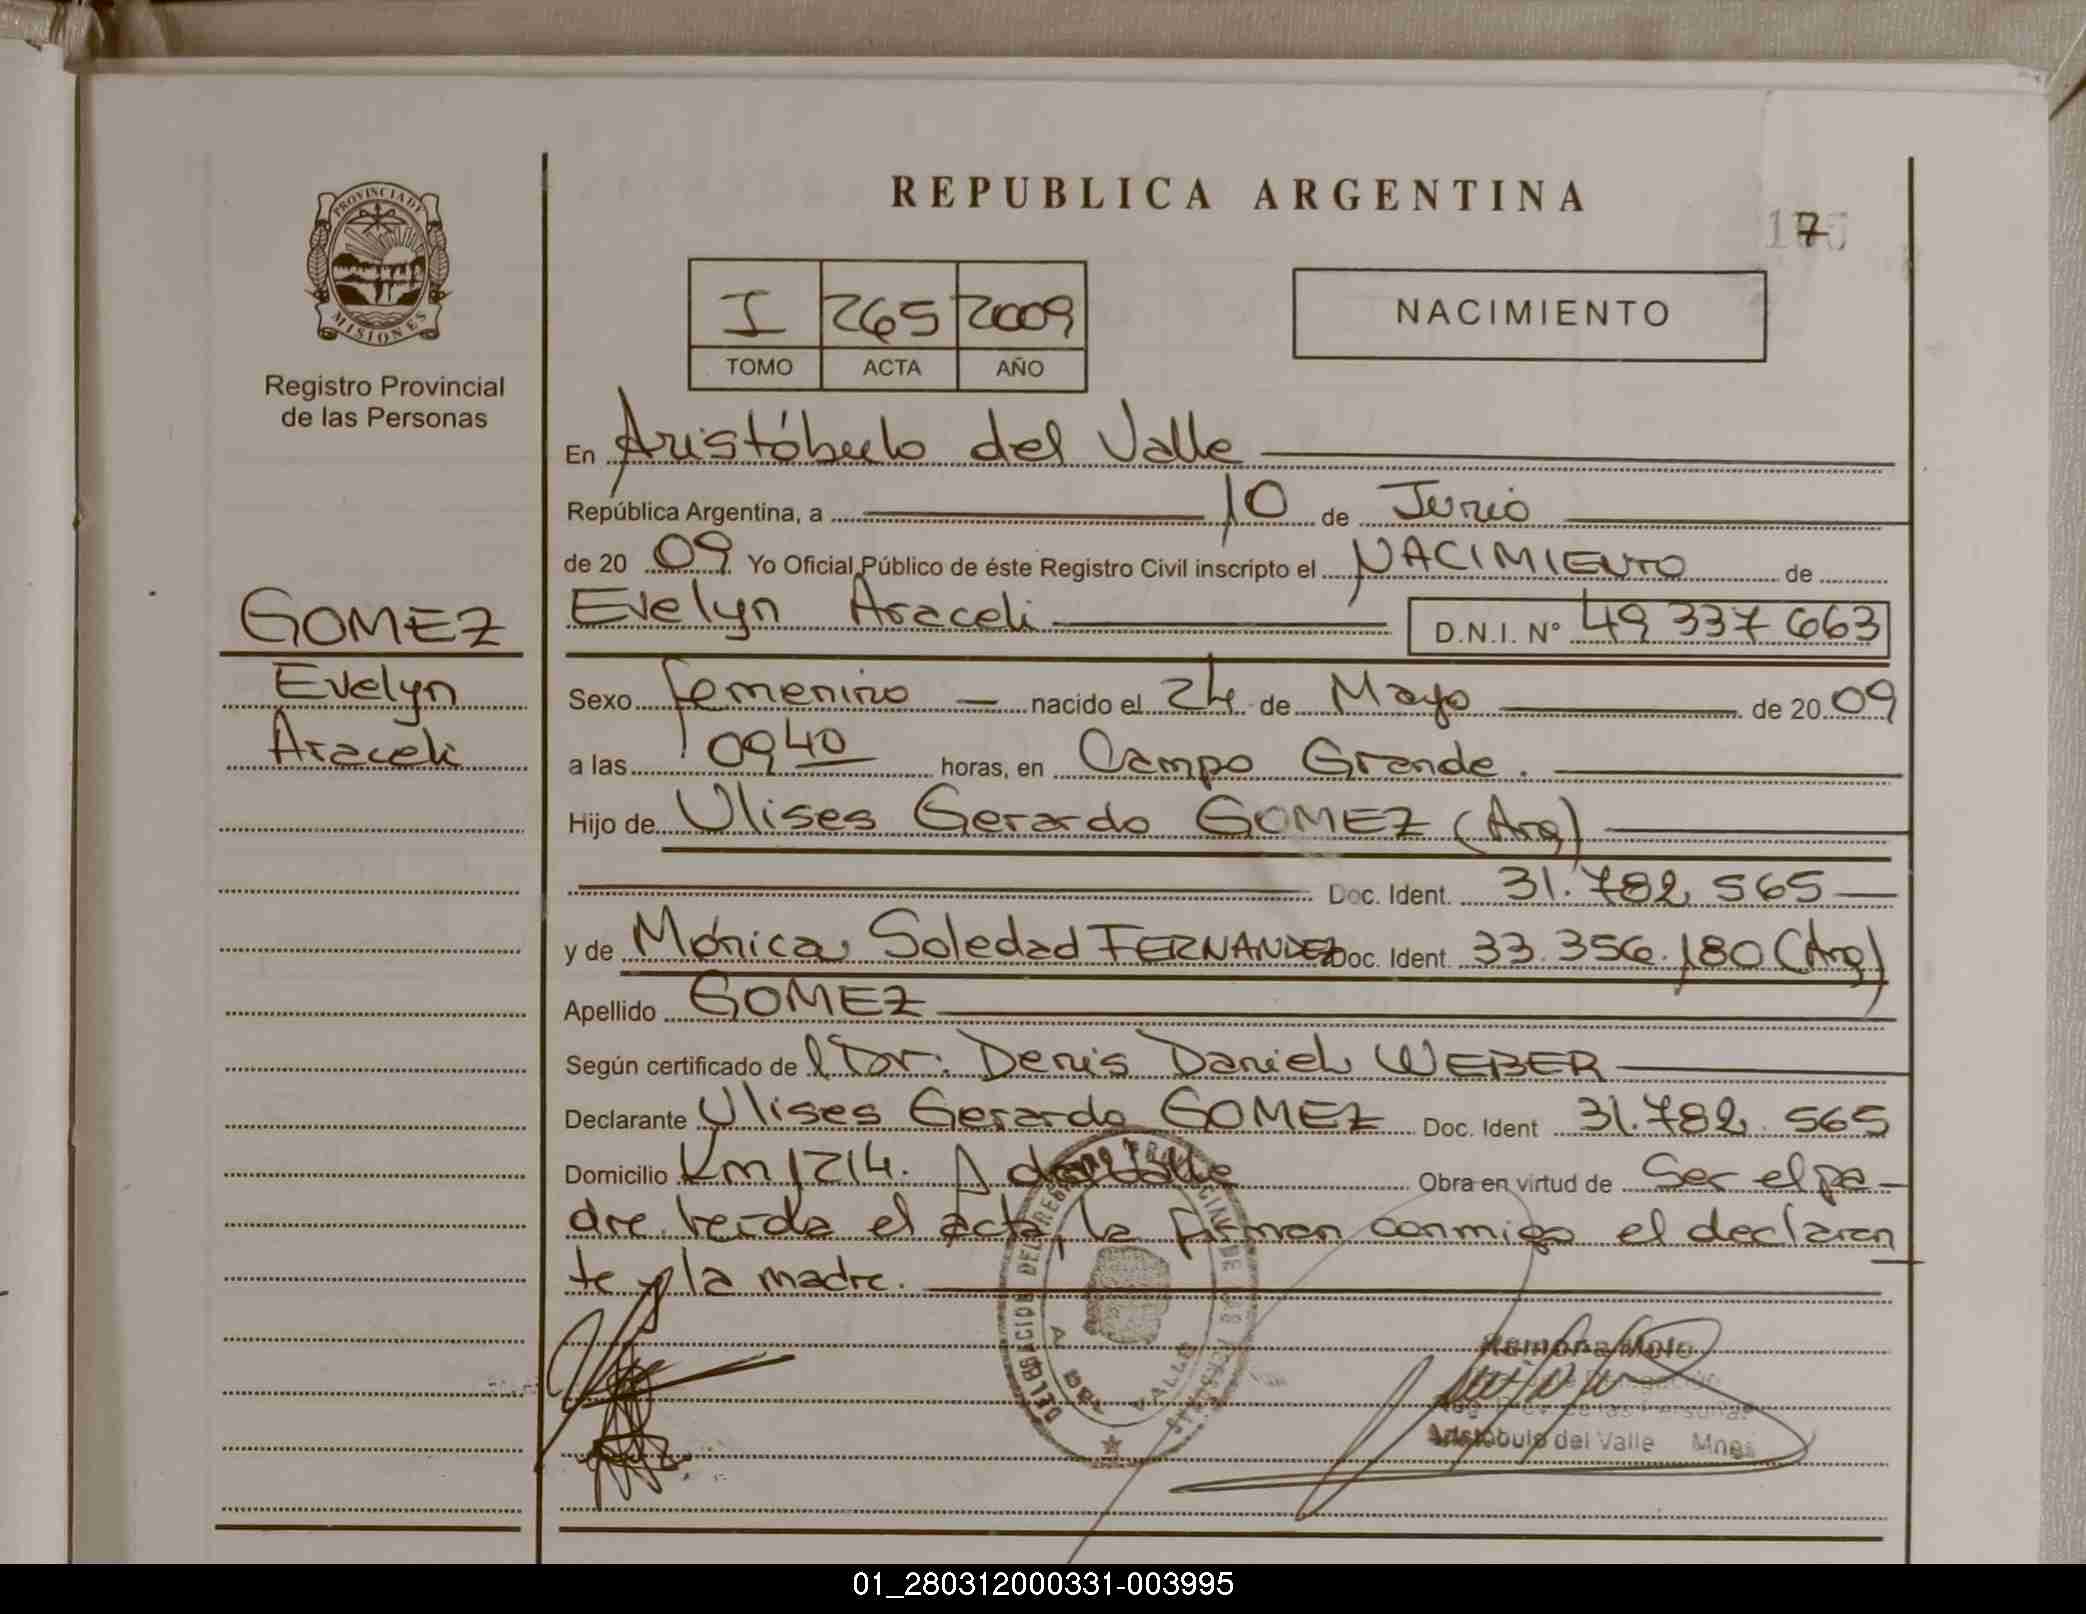 REPUBLICA ARGENTINA
PROVINCIA DE
MISIONES
Registro Provincial
de las Personas
I 265 2009
TOMO ACTA AÑO
NACIMIENTO
En Aristóbulo del Valle
República Argentina, a 10 de Junio
de 20 09 Yo Oficial Público de éste Registro Civil inscripto el NACIMIENTO de
GOMEZ
Evelyn
Araceli
Evelyn Araceli D.N.I. N° 49 337 663
Sexo femenino nacido el 24 de Mayo de 20 09
a las 09 40 horas, en Campo Grande.
Hijo de Ulises Gerardo GOMEZ (Arg)
Doc. Ident. 31.782.565
y de Mónica Soledad FERNANDEZ Doc. Ident. 33.356.180 (Arg)
Apellido GOMEZ
Según certificado de l Dr. Denis Daniel WEBER
Declarante Ulises Gerardo GOMEZ Doc. Ident 31.782.565
Domicilio Km 1214. A del Valle Obra en virtud de Ser el pa-
dre. leída el acta, la firman conmigo el declaran
te y la madre.
Aristóbulo del Valle Mnes
01_280312000331-003995